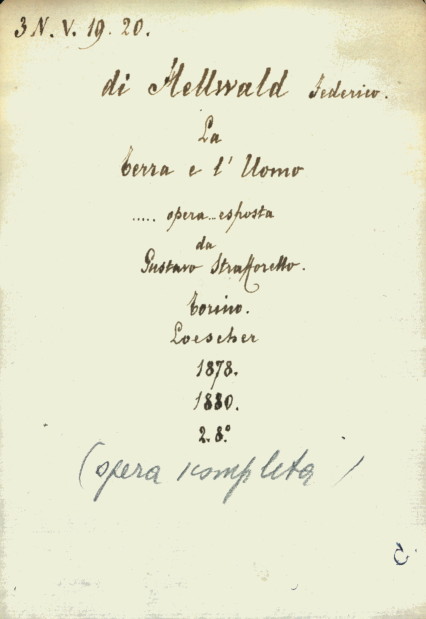 3 N. V. 19. 20.
di Hellwald Federico.
La
Terra e l' Uomo
..... opera ... esposta
da
Gustavo Strafforello.
Torino.
Loescher
1878.
1880.
2. 8.°
(opera completa)